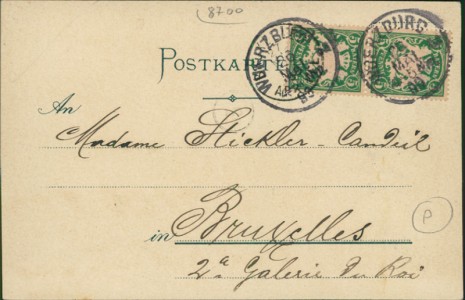 8700
POSTKARTE
WUERZBURG
WUERZBURG
An
Madame Stickler-Candeil
in Bruxelles
2 a Galerie du Roi
P